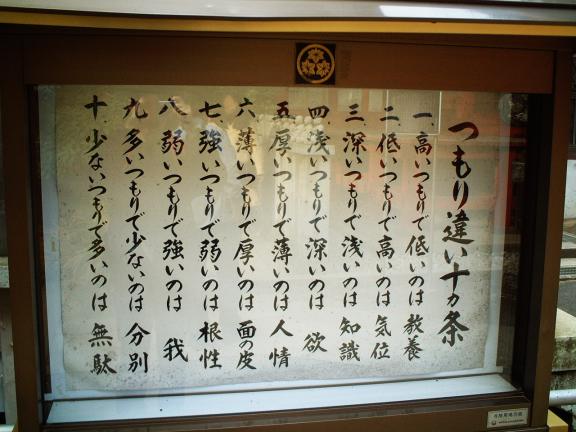 つもり違い十ヵ条
一、高いつもりで低いのは 教養
二、低いつもりで高いのは 気位
三、深いつもりで浅いのは 知識
四、浅いつもりで深いのは 欲
五、厚いつもりで薄いのは 人情
六、薄いつもりで厚いのは 面の皮
七、強いつもりで弱いのは 根性
八、弱いつもりで強いのは 我
九、多いつもりで少ないのは 分別
十、少ないつもりで多いのは 無駄